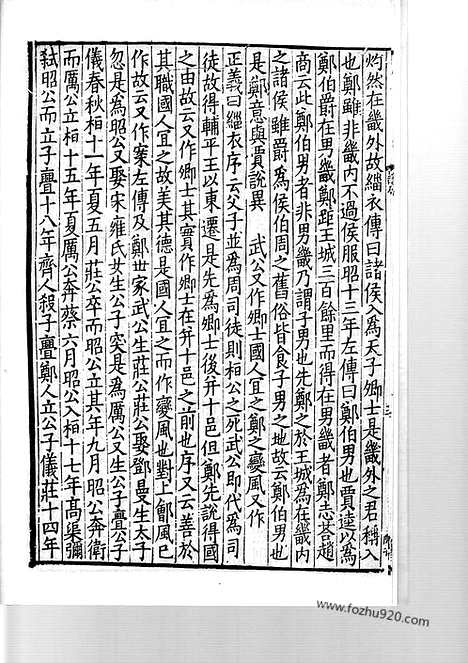 灼然在畿外故緇衣傳曰諸侯入爲天子卿士是畿外之君稱入
也鄭雖非畿内不過侯服昭十三年左傳曰鄭伯男也賈逵以爲
鄭伯爵在男畿鄭距王城三百餘里而得在男畿者鄭志荅趙
商云此鄭伯男者非男畿乃謂子男也先鄭之於王城爲在畿内
之諸侯雖爵爲侯伯周之舊俗皆食子男之地故云鄭伯男也
是鄭意與賈說異 武公又作卿士國人宜之鄭之變風又作
正義曰緇衣序云父子並爲周司徒則桓公之死武公即代爲司
徒故得輔平王以東遷是先爲卿士後并十邑但鄭先說得國
之由故云又作卿士其實作卿士在并十邑之前也序又云善於
其職國人宜之故美其德是國人宜之而作變風也對上鄶風已
作故云又作案左傳及鄭世家武公生莊公莊公娶鄧曼生太子
忽是爲昭公又娶宋雍氏女生公子突是爲厲公又生公子亹公子
儀春秋桓十一年夏五月莊公卒而昭公立其年九月昭公奔衛
而厲公立桓十五年夏厲公奔蔡六月昭公入桓十七年高渠彌
弒昭公而立子亹十八年齊人殺子亹鄭人立公子儀莊十四年
三
https://www.fozhu920.com/